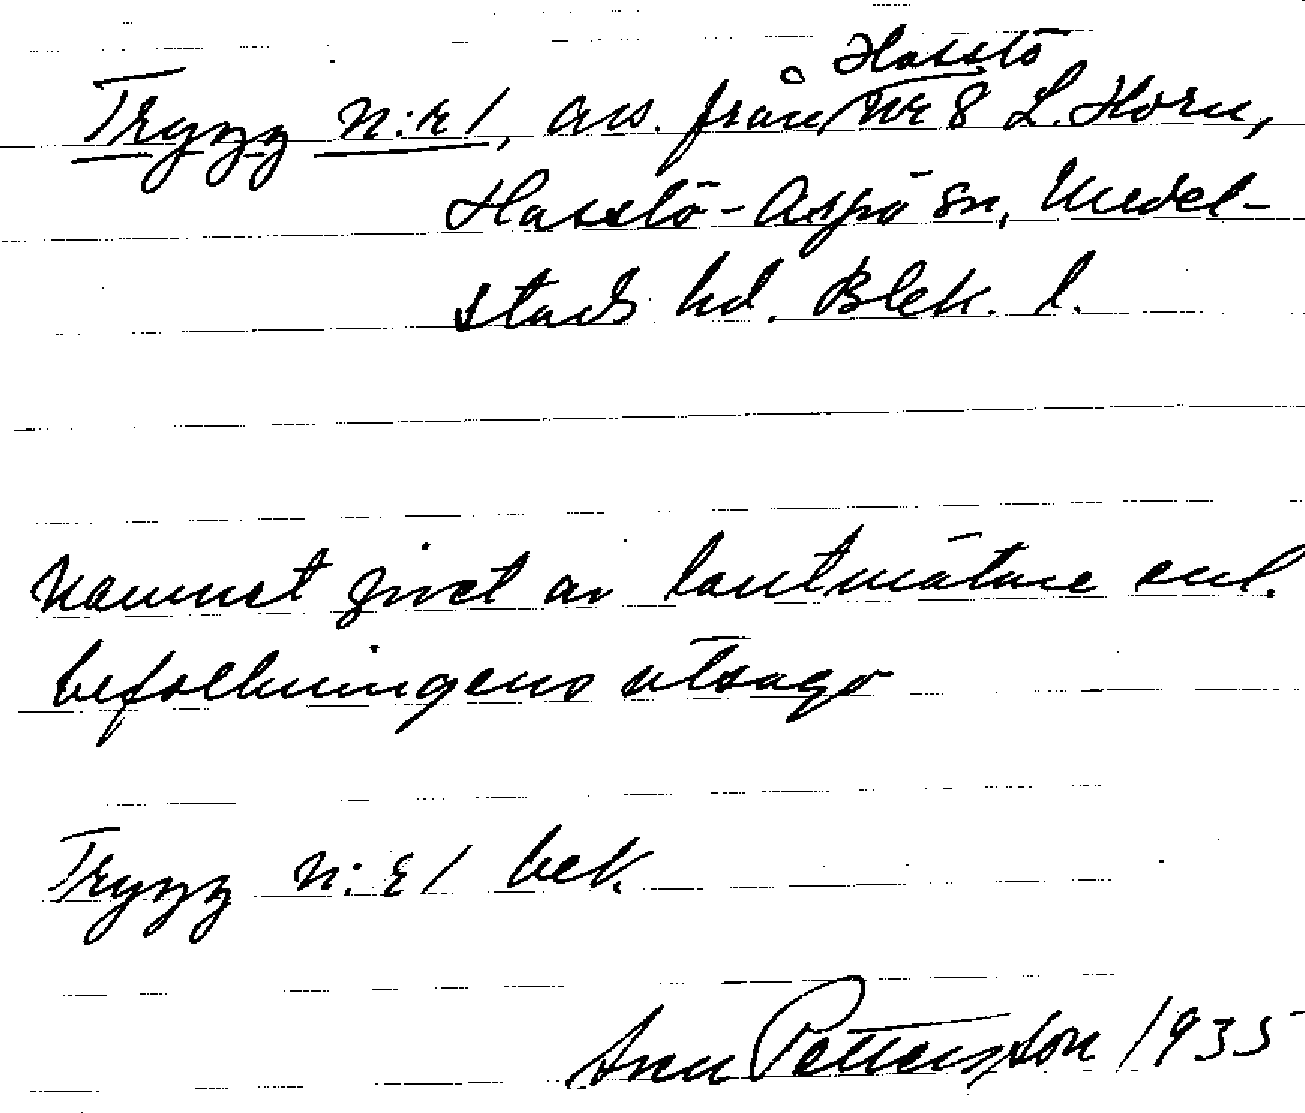 Hasslö
Trygg N:r 1, avs. från Nr 8 L. Horn,
Hasslö-Aspö sn, Medel-
stads hd. Blek. l.
Namnet givet av lantmätare enl.
befolkningens utsago
Trygg N:r 1 bek.
Sven Pettersson 1935